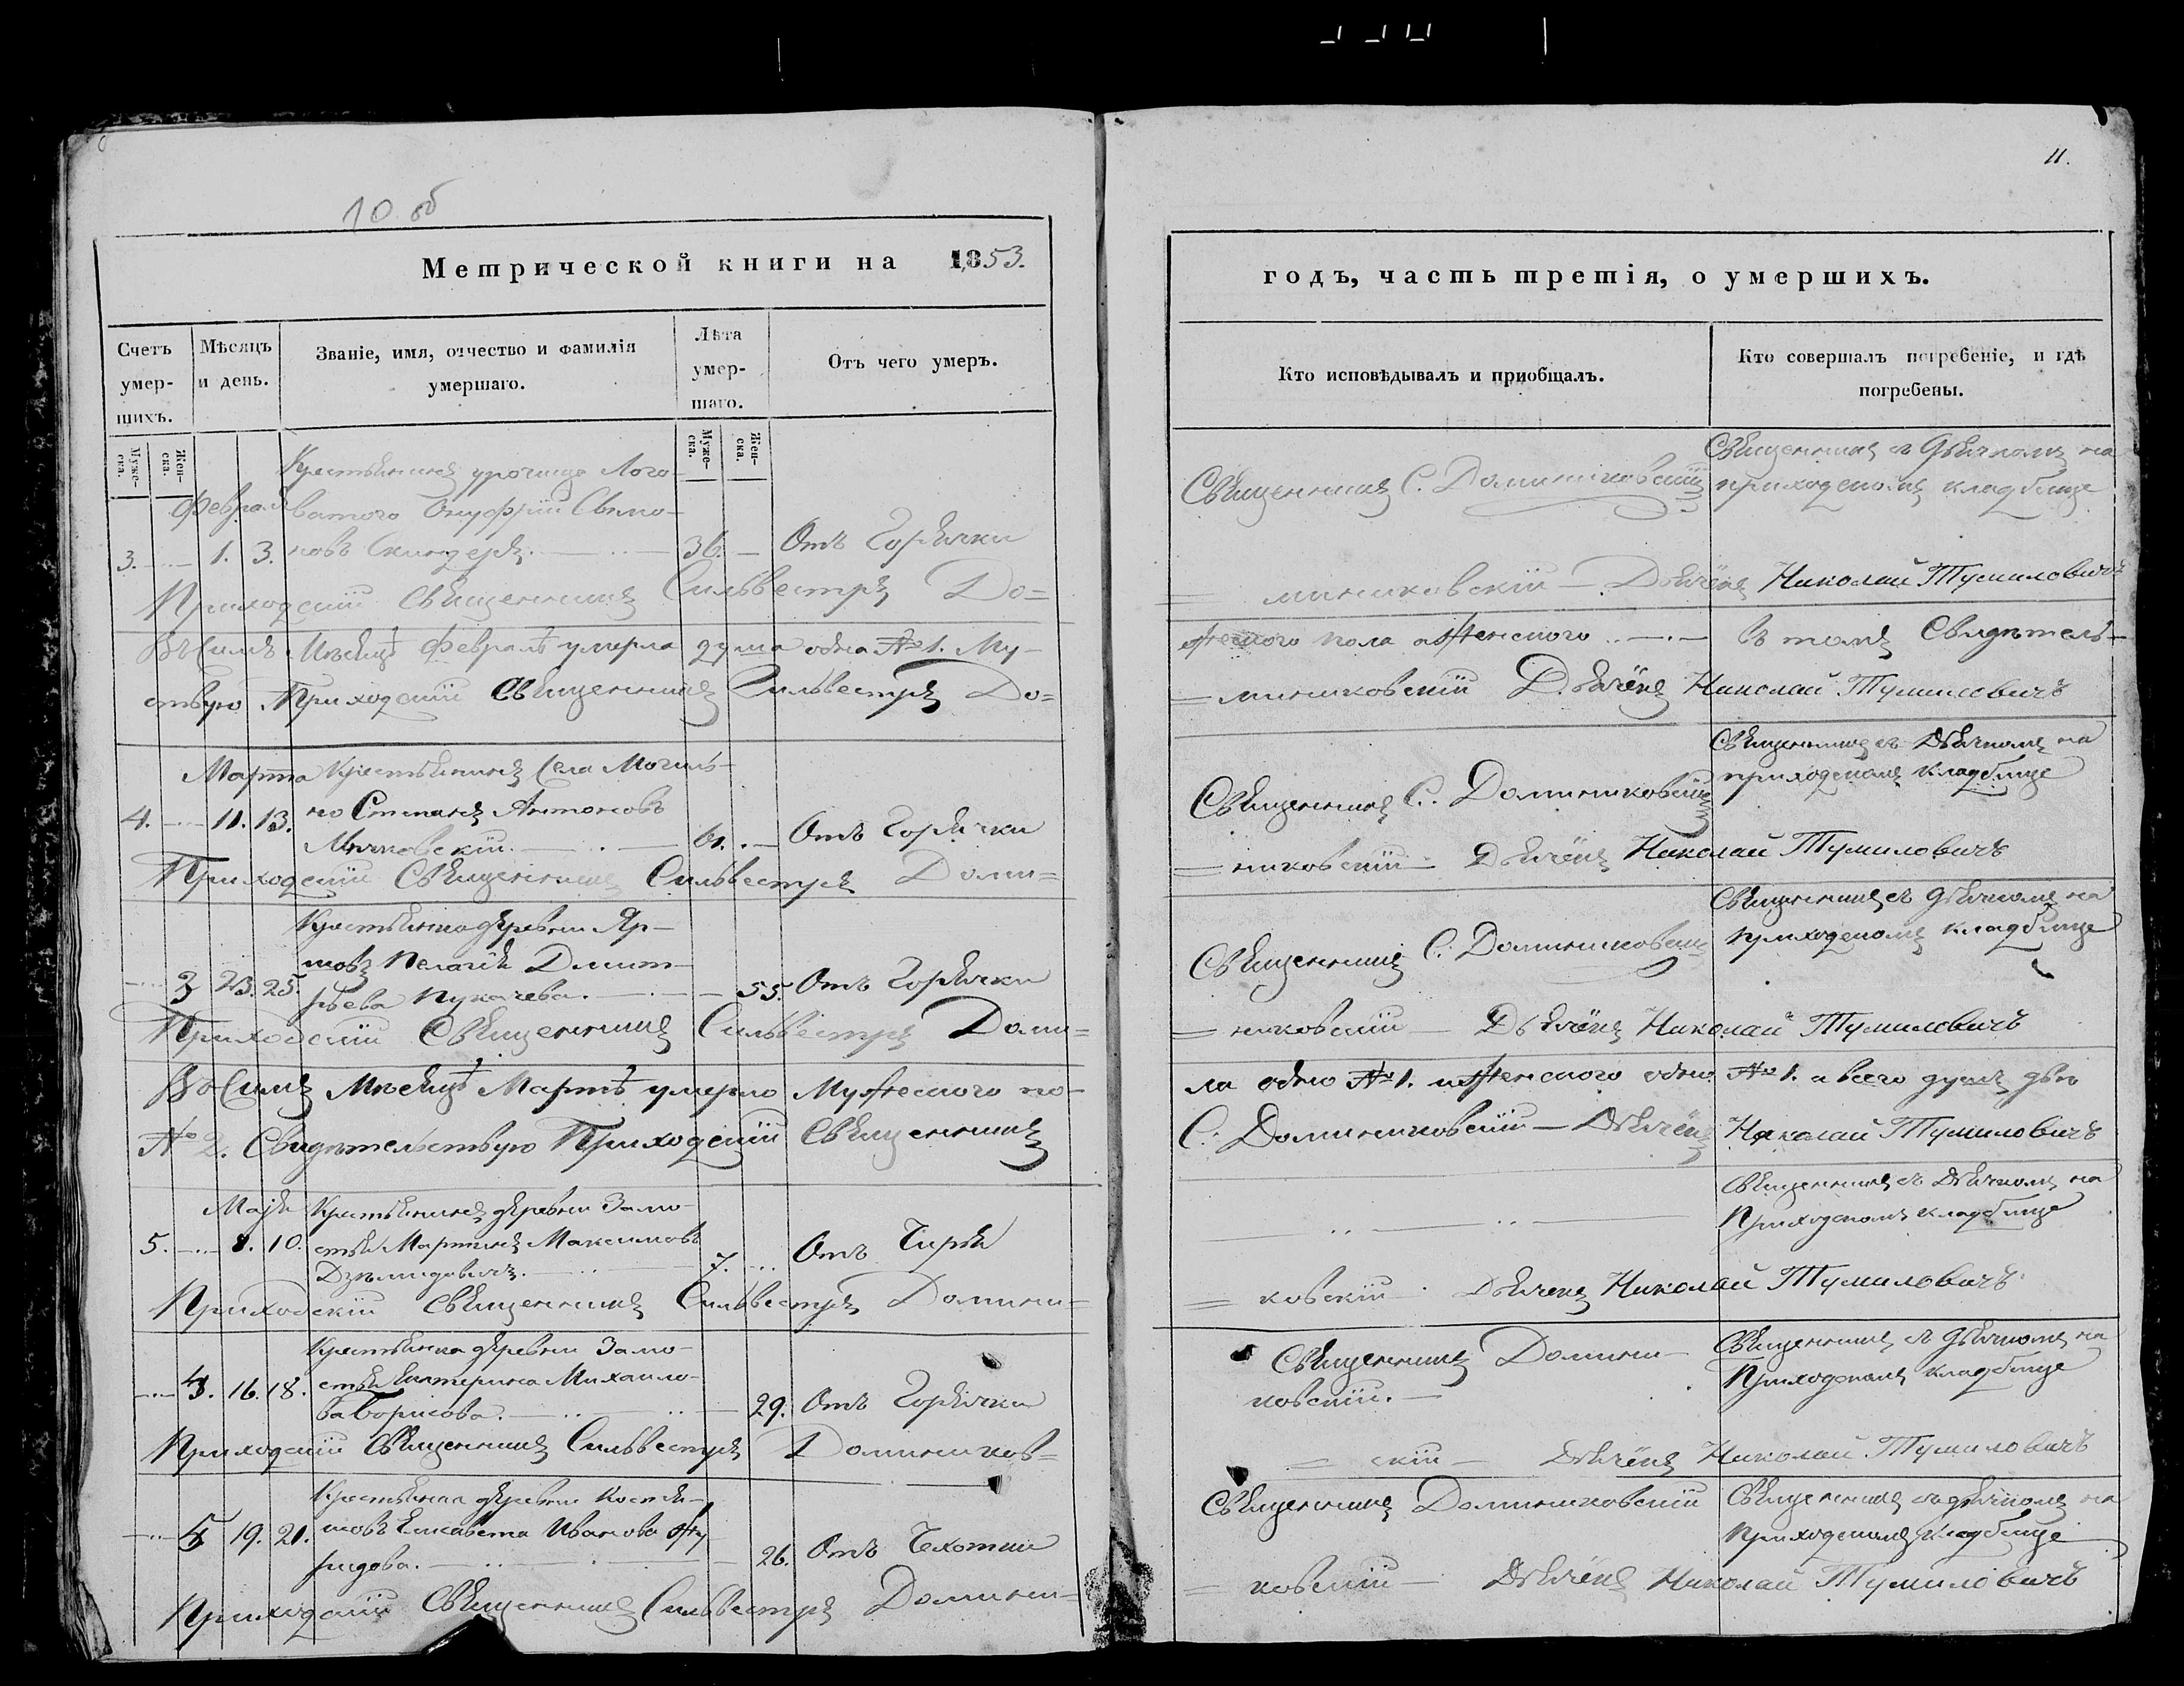 11.
10 об
Метрической книги на 1853.
годъ, часть третія, о умершихъ.
Счетъ умершихъ.
Мѣсяцъ и день.
Званіе, имя, отчество и фамилія умершаго.
Лѣта умершаго.
Отъ чего умеръ.
Кто исповѣдывалъ и приобщалъ.
Кто совершалъ погребеніе, и гдѣ погребены.
Муже-ска.
Жен-ска.
Муже-ска.
Жен-ска.
Февраля
3. 1. 3.
Крестьянинъ урочища Лого-
ватого Онуфрій
новъ
36.
Отъ Горячки
Священникъ С. Доминиковскій
Священникъ съ Дьячкомъ на
приходскомъ кладбище
Приходскій Священникъ Сильвестръ До=
=миниковскій Дьячёкъ Николай Тумиловичъ
Въ Семъ Мѣсяцѣ Февралѣ умерла душа одна № 1. Му-
жеского пола а женского въ томъ Свидѣтель-
ствую Приходскій Священникъ Сильвестръ До=
=миниковскій Дьячёкъ Николай Тумиловичъ
Марта
4. 11. 13.
Крестьянинъ Села Могиль-
но Степанъ Антоновъ
61.
Отъ Горячки
Священникъ С. Доминиковскій
Священникъ съ Дьячкомъ на
приходскомъ кладбище
Приходскій Священникъ Сильвестръ Доми=
=никовскій Дьячёкъ Николай Тумиловичъ
3 23. 25.
Крестьянка деревни Яр-
Пелагія Дмит-
рьева Пукачева.
55.
Отъ Горячки
Священникъ С. Доминиковскій
Священникъ съ Дьячкомъ на
приходскомъ кладбище
Приходскій Священникъ Сильвестръ Доми=
=никовскій Дьячёкъ Николай Тумиловичъ
Въ Семъ Мѣсяцѣ Мартѣ умерло Мужеского по-
ла одно № 1. и женского одно № 1. а всего душъ двѣ
№ 2. Свидѣтельствую Приходскій Священникъ
С. Доминиковскій Дьячёкъ Николай Тумиловичъ
Маія
5. 8. 10.
Крестьянинъ деревни Замо-
стья Мартинъ Максимовъ
7.
Отъ Чирья
Священникъ съ Дьячкомъ на
Приходскомъ кладбище
Приходскій Священникъ Сильвестръ Домини=
=ковскій Дьячекъ Николай Тумиловичъ
4. 16. 18.
Крестьянка деревни Замо-
стья Екатерина Михайло-
ва Борисова.
29.
Отъ Горячки
Священникъ Домини-
ковскій.
Священникъ съ Дьячкомъ на
Приходскомъ кладбище
Приходскій Священникъ Сильвестръ Домиников=
=скій Дьячёкъ Николай Тумиловичъ
5 19. 21.
Крестьянка деревни Костя-
шовъ Елисавета Иванова
26.
Отъ Чехотки
Священникъ Доминиковскій
Священникъ съ Дьячкомъ на
приходскомъ кладбище
Приходскій Священникъ Сильвестръ Домини=
=ковскій Дьячёкъ Николай Тумиловичъ